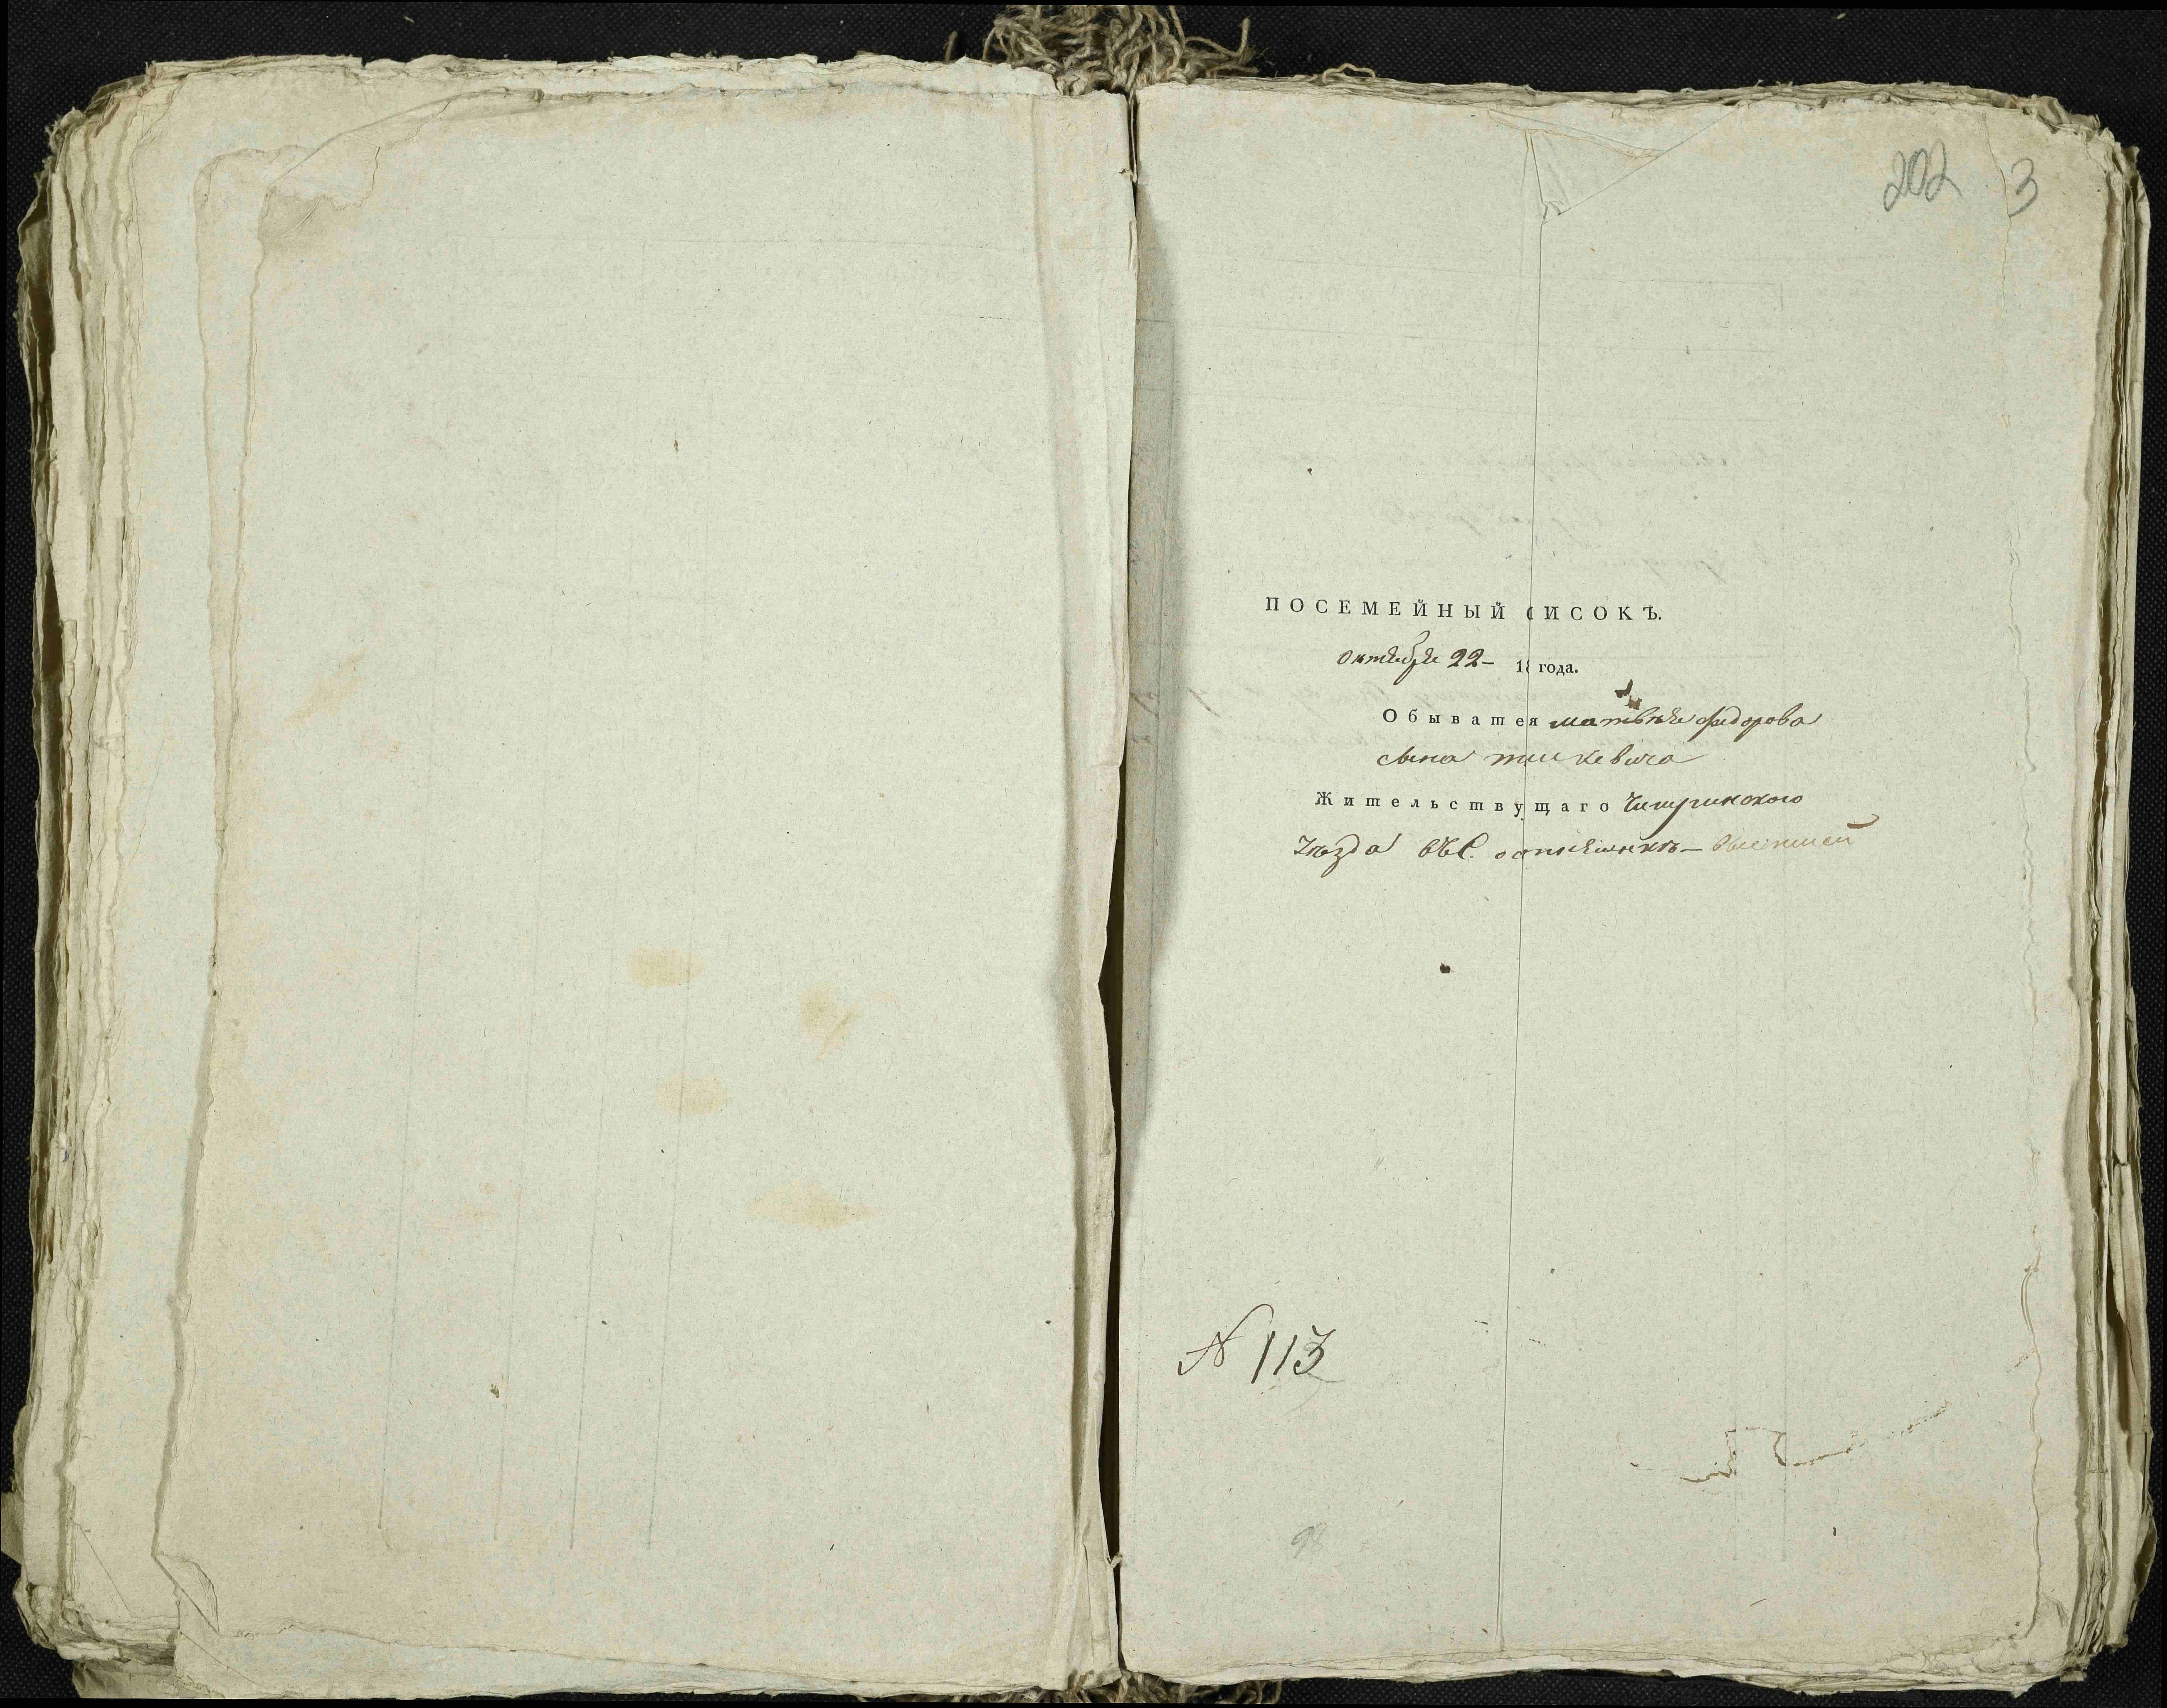 202 3
ПОСЕМЕЙНЫЙ СИСОКЪ.
Октября 22– 18 года.
Обыватея Матвѣя Федорова
сына
Жительствущаго Чигринского
Уѣзда въ С.
N 113
98